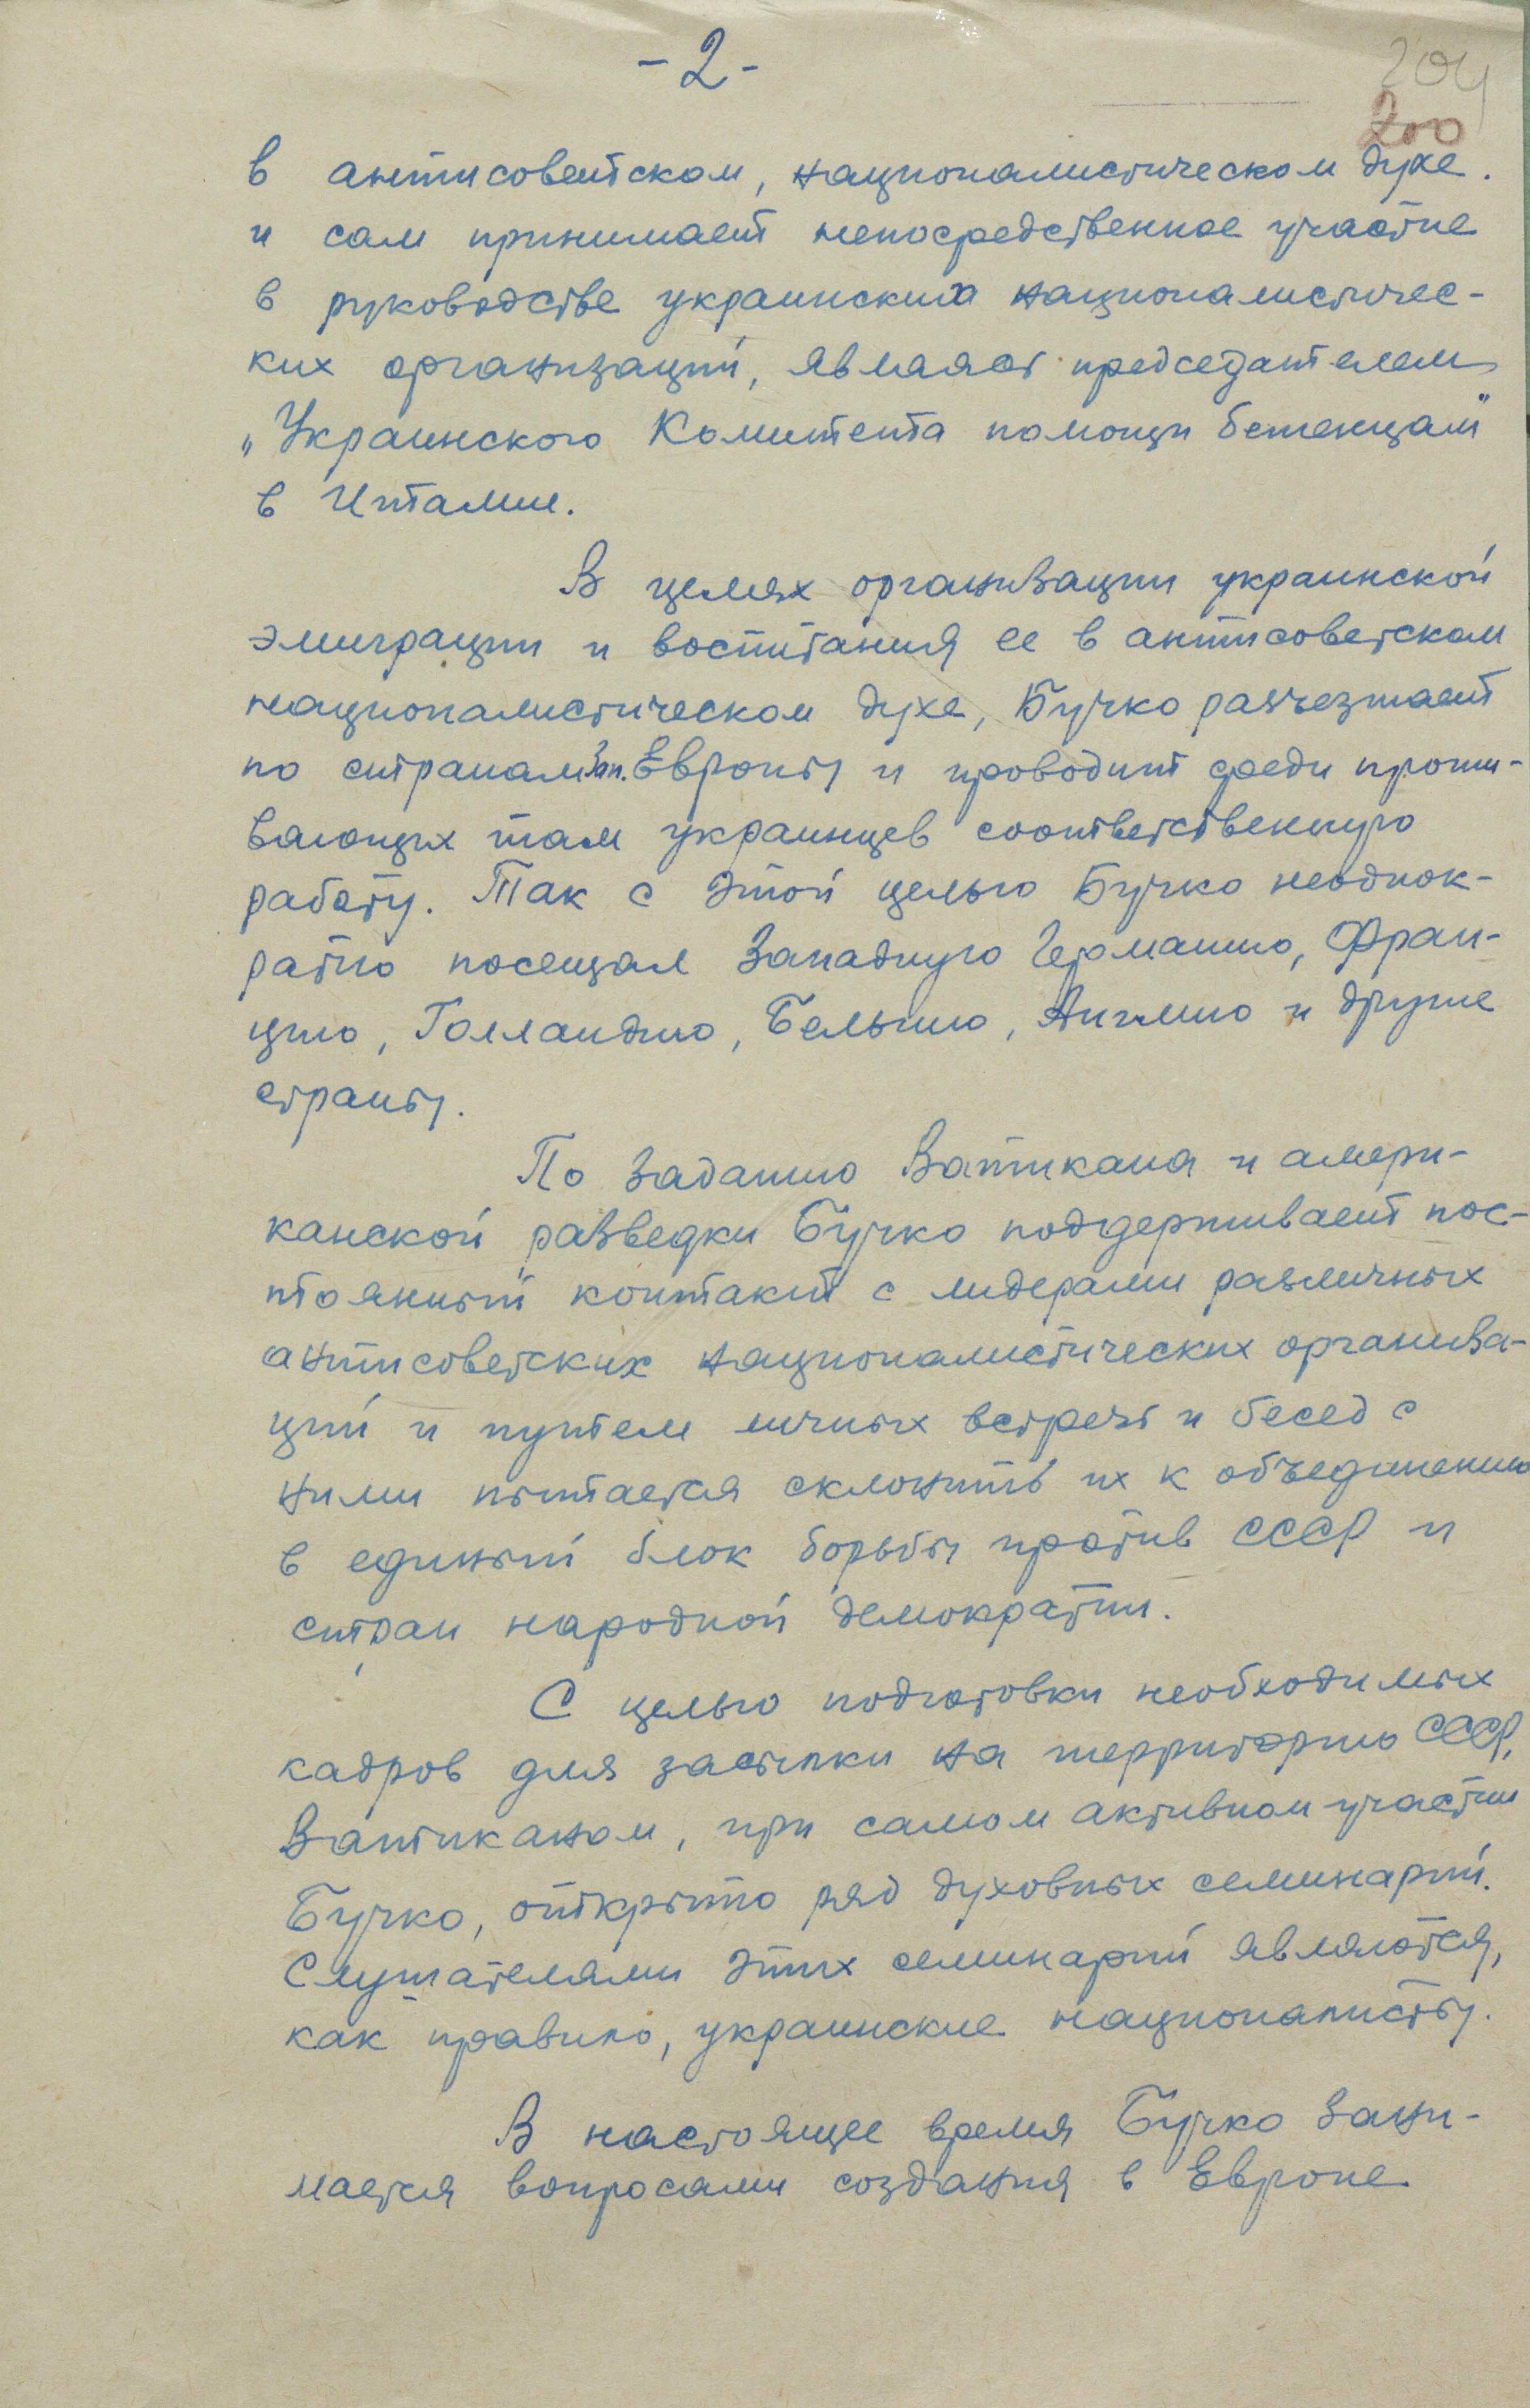 - 2 -
204
200
в антисоветском, националистическом духе.
и сам принимает непосредственное участие
в руководстве украинских националистичес-
ких организаций, являясь председателем
„Украинского Комитета помощи беженцам"
в Италии.
В целях организации украинской
эмиграции и воспитания ее в антисоветском
националистическом духе, Бучко разъезжает
по странам Зап. Европы и проводит среди прожи-
вающих там украинцев соответственную
работу. Так с этой целью Бучко неоднок-
ратно посещал Западную Германию, Фран-
цию, Голландию, Бельгию, Англию и другие
страны.
По заданию Ватикана и амери-
канской разведки Бучко поддерживает пос-
тоянный контакт с лидерами различных
антисоветских националистических организа-
ций и путем личных встреч и бесед с
ними пытается склонить их к объединению
в единый блок борьбы против СССР и
стран народной демократии.
С целью подготовки необходимых
кадров для засылки на территорию СССР,
Ватиканом, при самом активном участии
Бучко, открыто ряд духовных семинарий.
Слушателями этих семинарий являются,
как правило, украинские националисты.
В настоящее время Бучко зани-
мается вопросами создания в Европе